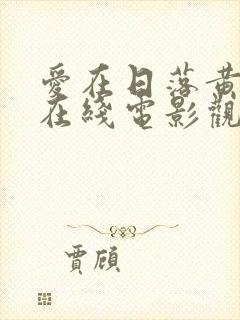 愛在日落黃
在綫電影觀
賈頎